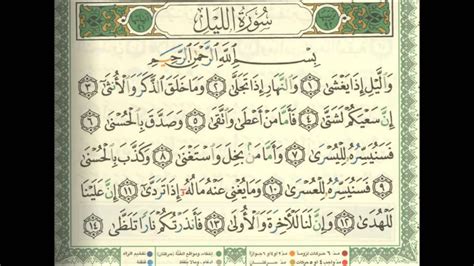 سُورَةُ اللَّيْلِ
بِسْمِ اللَّهِ الرَّحْمَٰنِ الرَّحِيمِ
وَاللَّيْلِ إِذَا يَغْشَىٰ ١ وَالنَّهَارِ إِذَا تَجَلَّىٰ ٢ وَمَا خَلَقَ الذَّكَرَ وَالْأُنثَىٰ ٣
إِنَّ سَعْيَكُمْ لَشَتَّىٰ ٤ فَأَمَّا مَنْ أَعْطَىٰ وَاتَّقَىٰ ٥ وَصَدَّقَ بِالْحُسْنَىٰ ٦
فَسَنُيَسِّرُهُ لِلْيُسْرَىٰ ٧ وَأَمَّا مَن بَخِلَ وَاسْتَغْنَىٰ ٨ وَكَذَّبَ بِالْحُسْنَىٰ
٩ فَسَنُيَسِّرُهُ لِلْعُسْرَىٰ ١٠ وَمَا يُغْنِي عَنْهُ مَالُهُ إِذَا تَرَدَّىٰ ١١ إِنَّ عَلَيْنَا
لَلْهُدَىٰ ١٢ وَإِنَّ لَنَا لَلْآخِرَةَ وَالْأُولَىٰ ١٣ فَأَنذَرْتُكُمْ نَارًا تَلَظَّىٰ ١٤